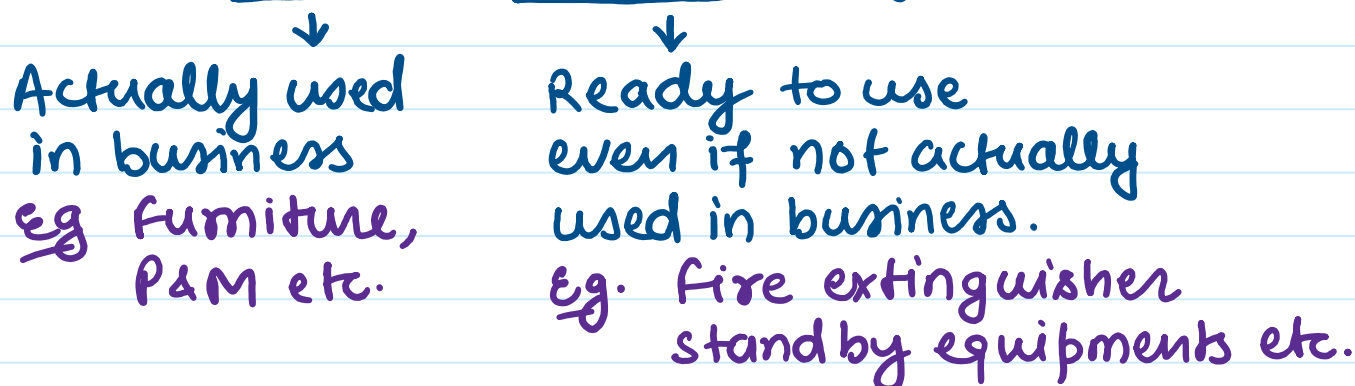 Actually used
in business
Eg Furniture,
P&M etc.
Ready to use
even if not actually
used in business.
Eg. Fire extinguisher
stand by equipments etc.